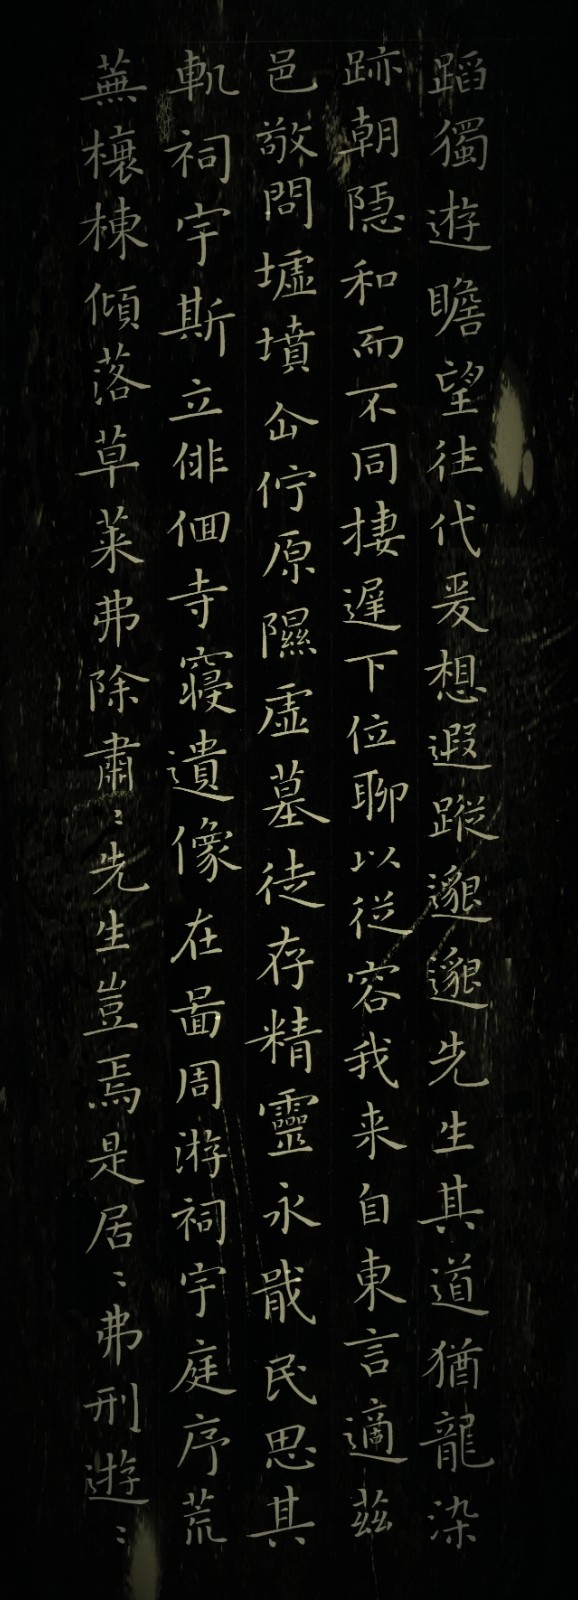 蹈獨遊瞻望往代爰想遐蹤邈邈先生其道猶龍染
跡朝隱和而不同捿遲下位聊以從容我来自東言適茲
邑敬問墟墳仚佇原隰虛墓徒存精靈永戢民思其
軌祠宇斯立俳佪寺寢遺像在啚周游祠宇庭序荒
蕪榱棟傾落草莱弗除肅〻先生豈焉是居〻弗刑遊〻